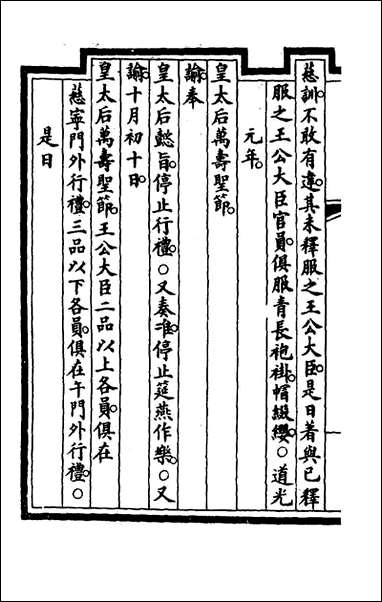 慈訓不敢有違。其未釋服之王公大臣。是日著與已釋
服之王公大臣官員。俱服青長袍褂。帽綴纓。○道光
元年。
皇太后萬壽聖節。
諭奉
皇太后懿旨。停止行禮。○又奏准。停止筵燕作樂。○又
諭十月初十日。
皇太后萬壽聖節。王公大臣二品以上各員。俱在
慈寧門外行禮。三品以下各員。俱在午門外行禮。○
是日